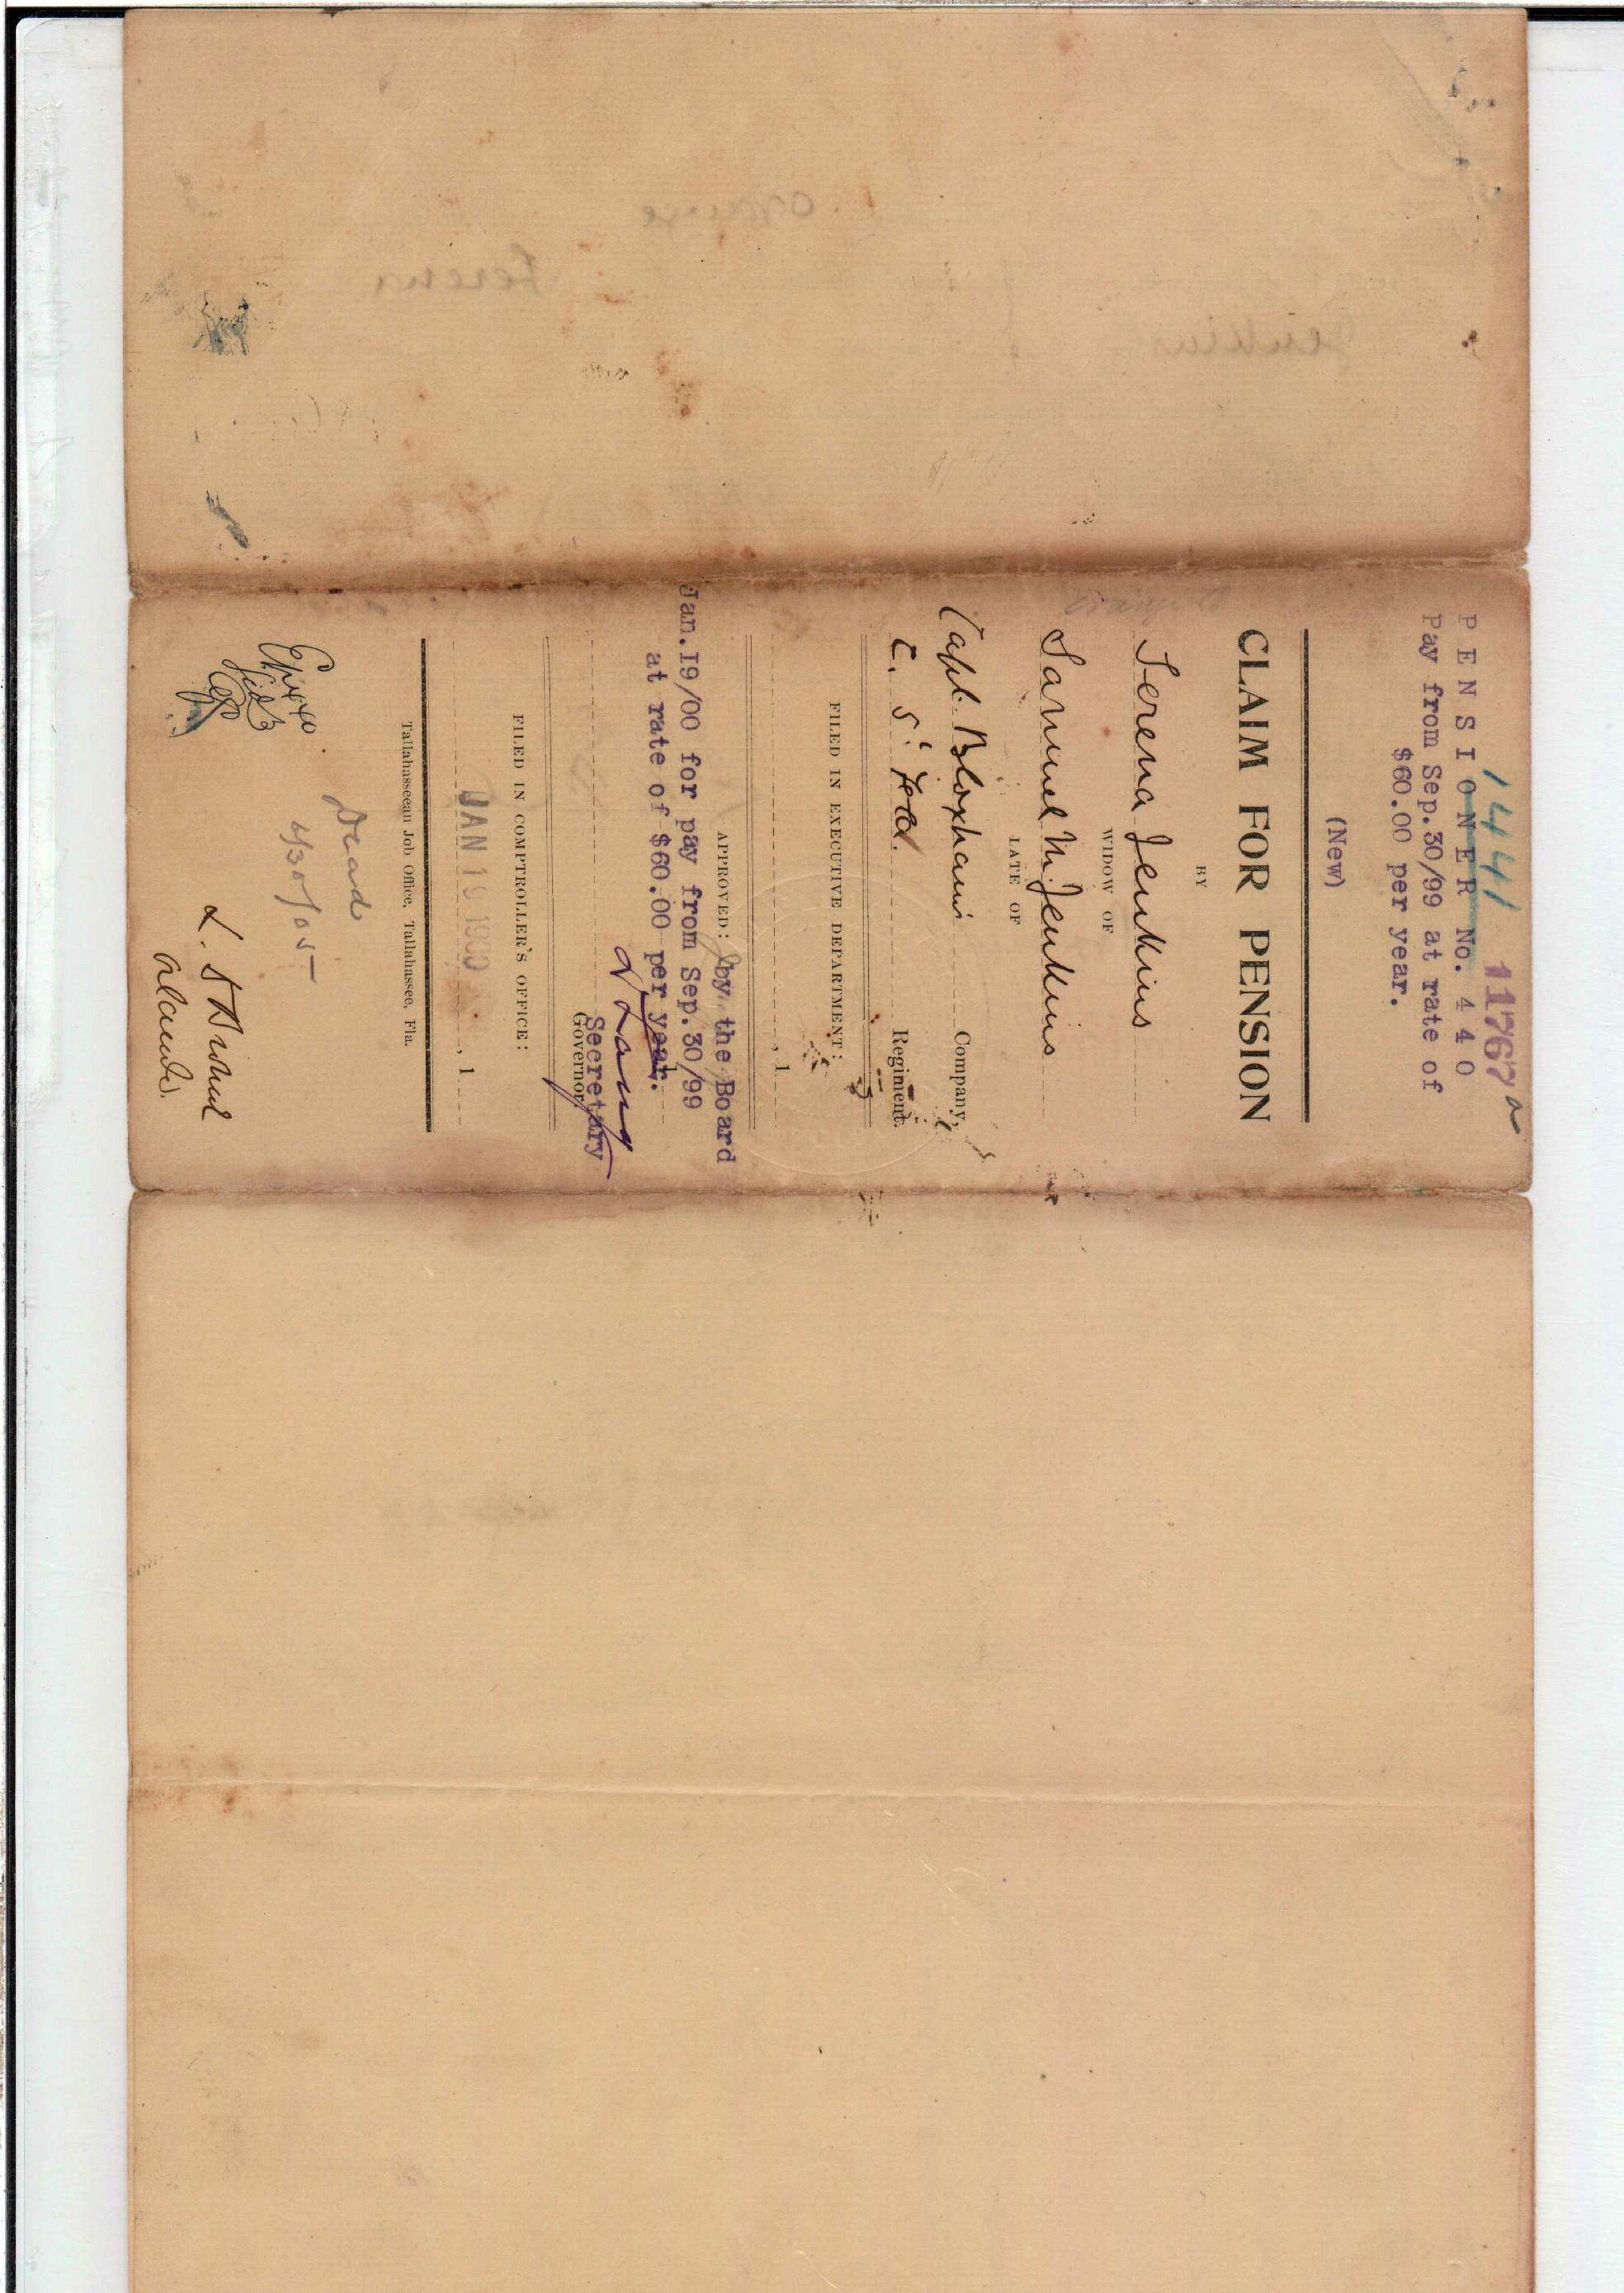 14441 11767 a
PENSIONER No. 440
Pay from Sep.30/99 at rate of
$60.00 per year.
(New)
CLAIM FOR PENSION
BY
Serena Jenkins
WIDOW OF
Samuel M. Jenkins
LATE OF
Capt. Bloxhams Company,
C. S. Regiment.
FILED IN EXECUTIVE DEPARTMENT:
, 1
APPROVED: by the Board
Jan.19/00 for pay from Sep.30/99
at rate of $60.00 per year.
Secretary
Governor
FILED IN COMPTROLLER'S OFFICE:
JAN 19 1900 , 1
Tallahasseean Job Office, Tallahassee, Fla.
Dead
4/30/05
Jenkins
Serena
Orange